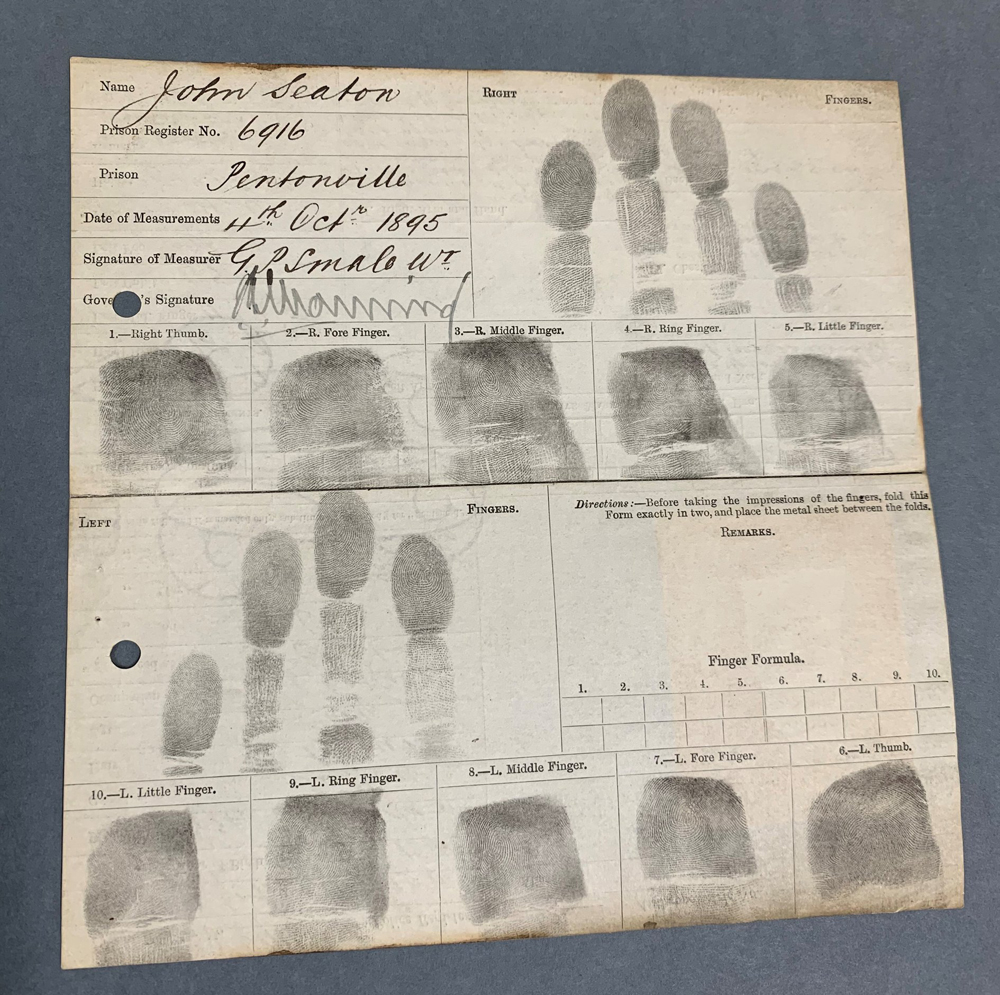 Name John Seaton
Prison Register No. 6916
Prison Pentonville
Date of Measurements 4th Octr 1895
Signature of Measurer G. P. Smale Wr
Gove 's Signature
RIGHT FINGERS.
1.—Right Thumb. 2.—R. Fore Finger. 3.—R. Middle Finger. 4.—R. Ring Finger. 5.—R. Little Finger.
LEFT FINGERS.
Directions:—Before taking the impressions of the fingers, fold this
Form exactly in two, and place the metal sheet between the folds.
REMARKS.
Finger Formula.
1. 2. 3. 4. 5. 6. 7. 8. 9. 10.
10.—L. Little Finger. 9.—L. Ring Finger. 8.—L. Middle Finger. 7.—L. Fore Finger. 6.—L. Thumb.